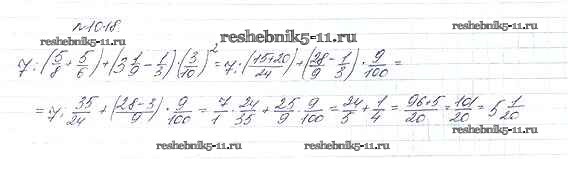 №1018
reshebnik5-11.ru
reshebnik5-11.ru
7:(5/8+5/6)+(3 1/9-1/3)·(3/10)²=7:(15+20/24)+(28/9-1/3)·9/100=
=7:35/24+(28-3/9)·9/100=7/1·24/35+25/9·9/100=24/5+1/4=96+5/20=101/20=5 1/20
reshebnik5-11.ru
reshebnik5-11.ru reshebnik5-11.ru